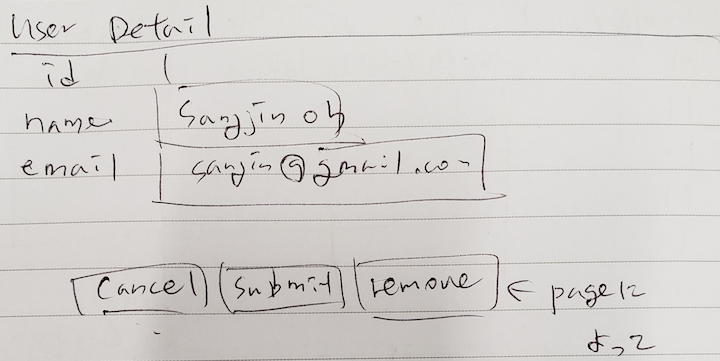 User Detail
id 1
name Sangjin Oh
email sanjin@gmail.com
Cancel Submit remove ← pageに
よって